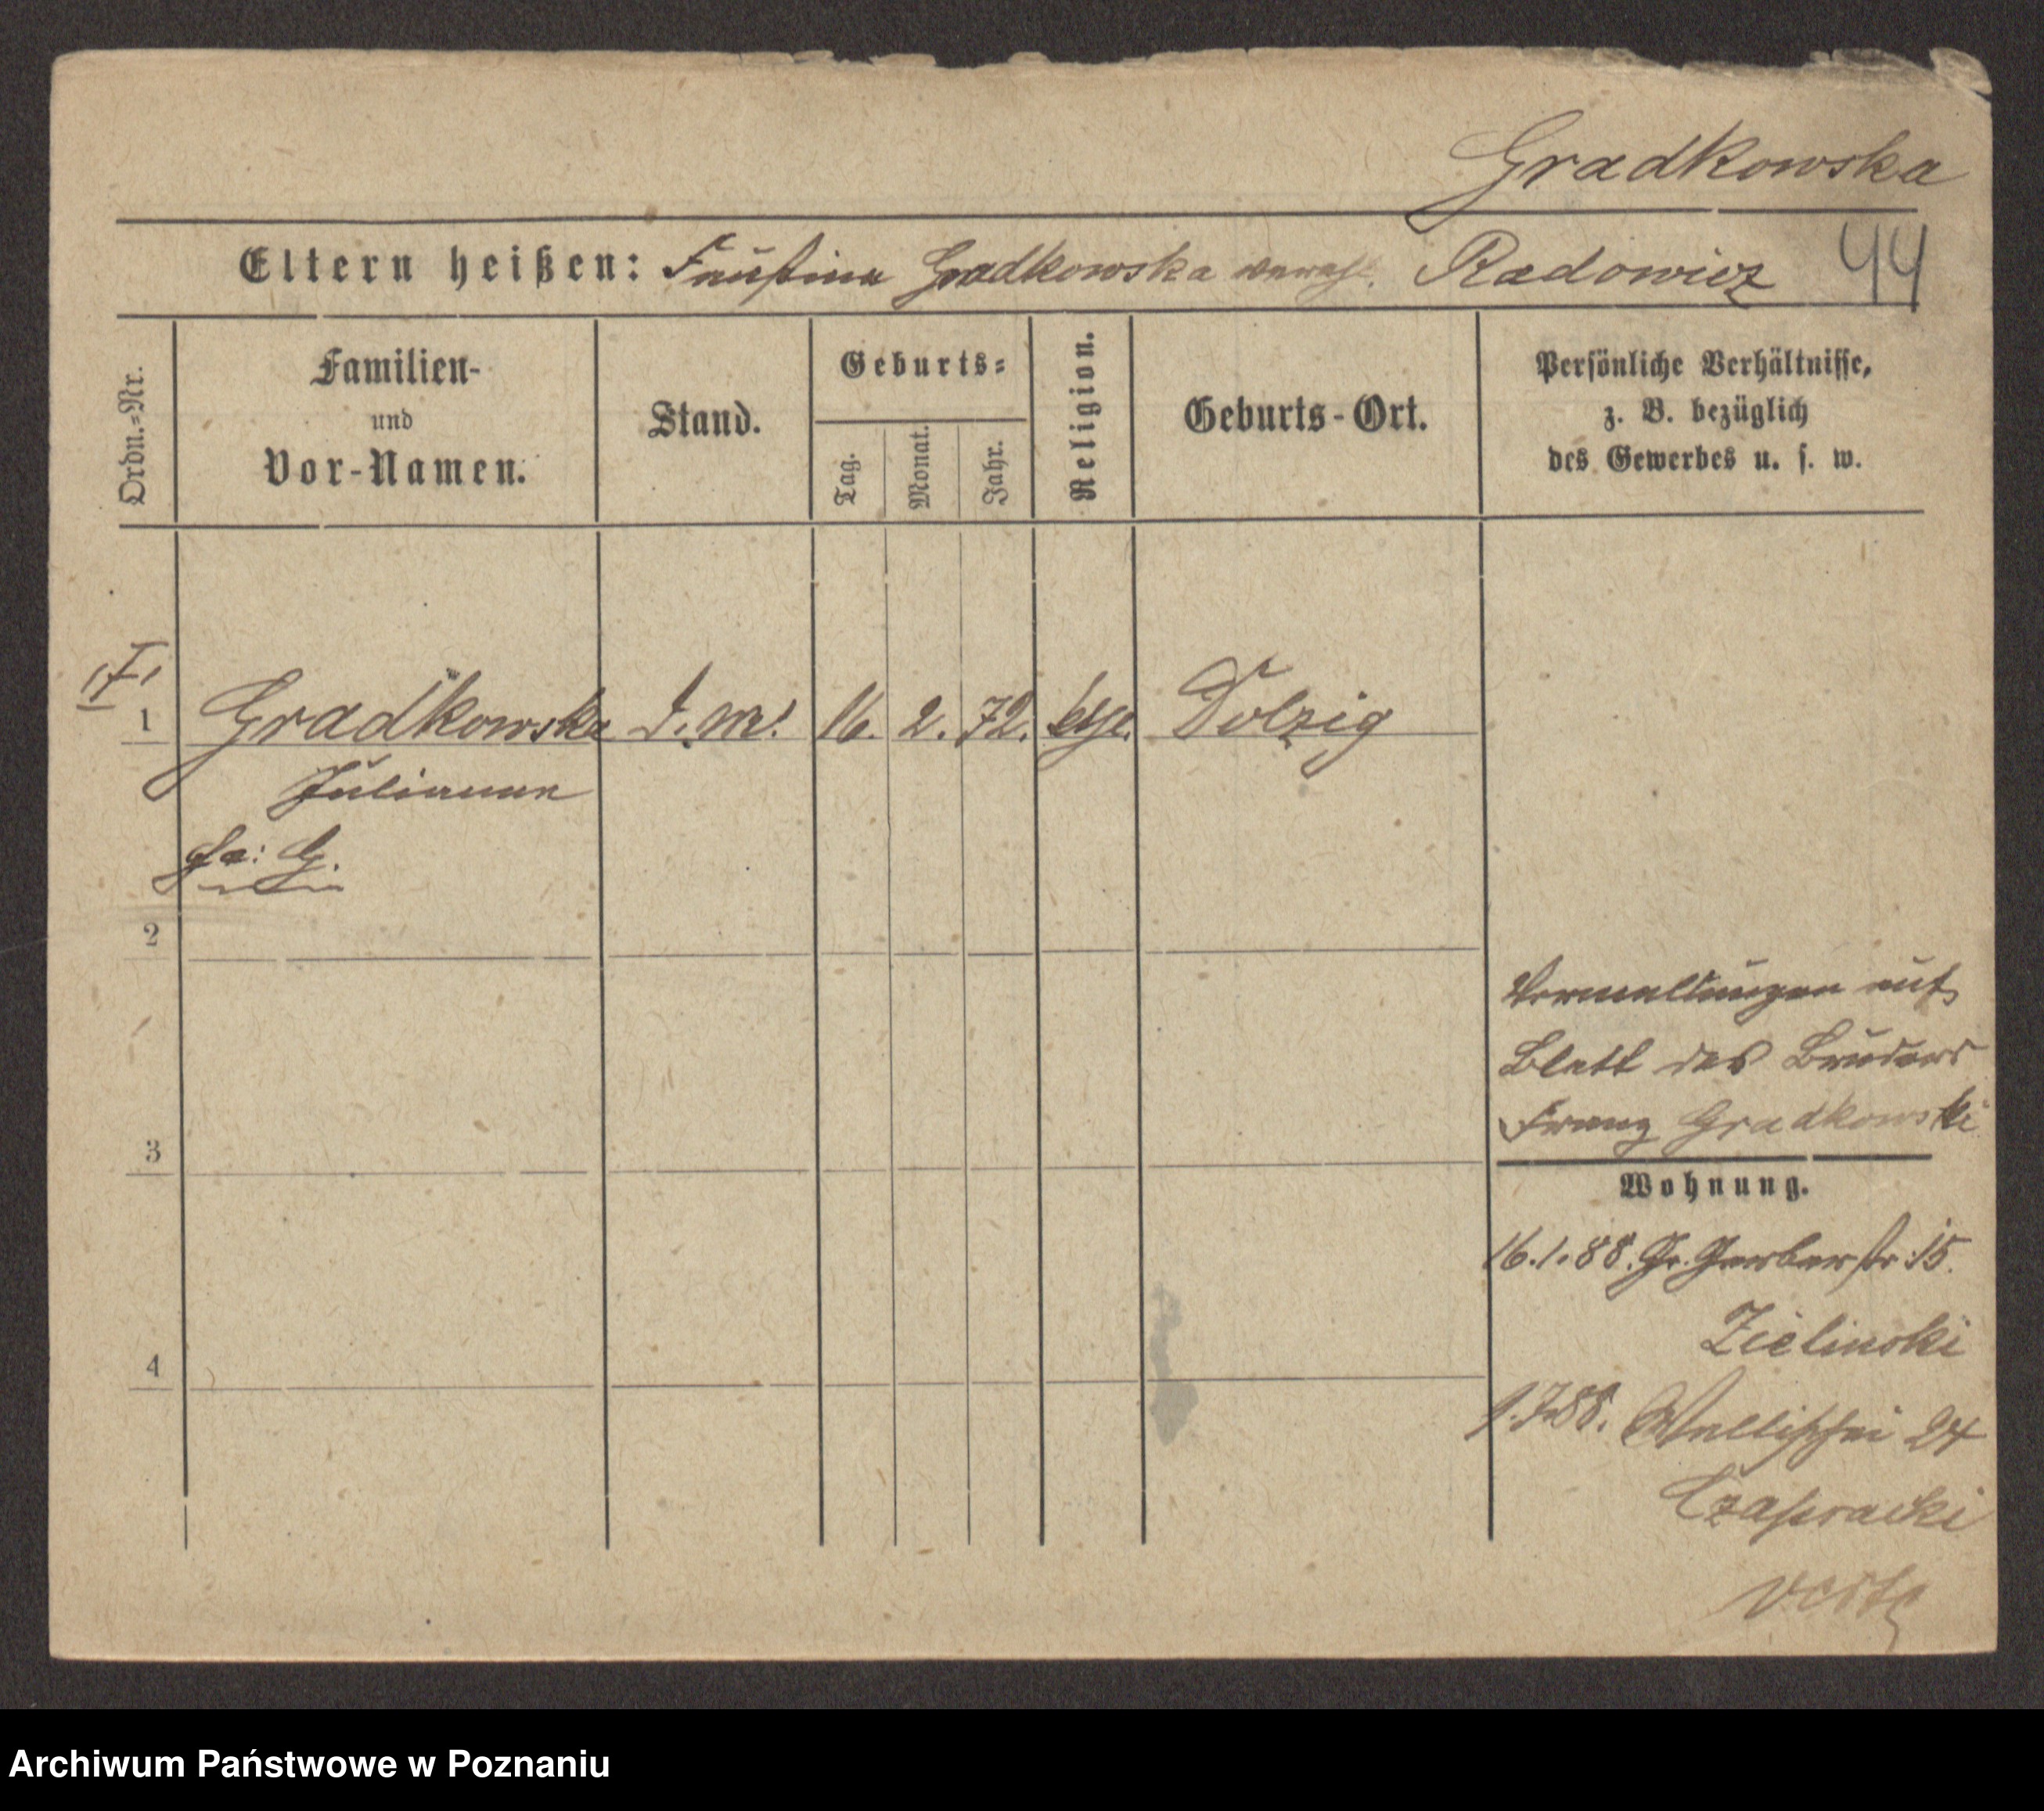 Gradkowska
Eltern heißen: Faustina Gradkowska verwehl. Radowicz 44
Ordn.=Nr.
Familien-
und
Vor-Namen.
Stand.
Geburts=
Tag.
Monat.
Jahr.
Religion.
Geburts-Ort.
Persönliche Verhältnisse,
z. B. bezüglich
des Gewerbes u. s. w.
1 Gradkowska d. m. 16. 2. 72. Dolzig
Julianna
2
3
4
auf
Blatt des Bruders
Franz Gradkowski
Wohnung.
16.1.88. Gr. Gerberstr 15.
Zielinski
1.7.88. Wallischei 24
verte
Archiwum Państwowe w Poznaniu